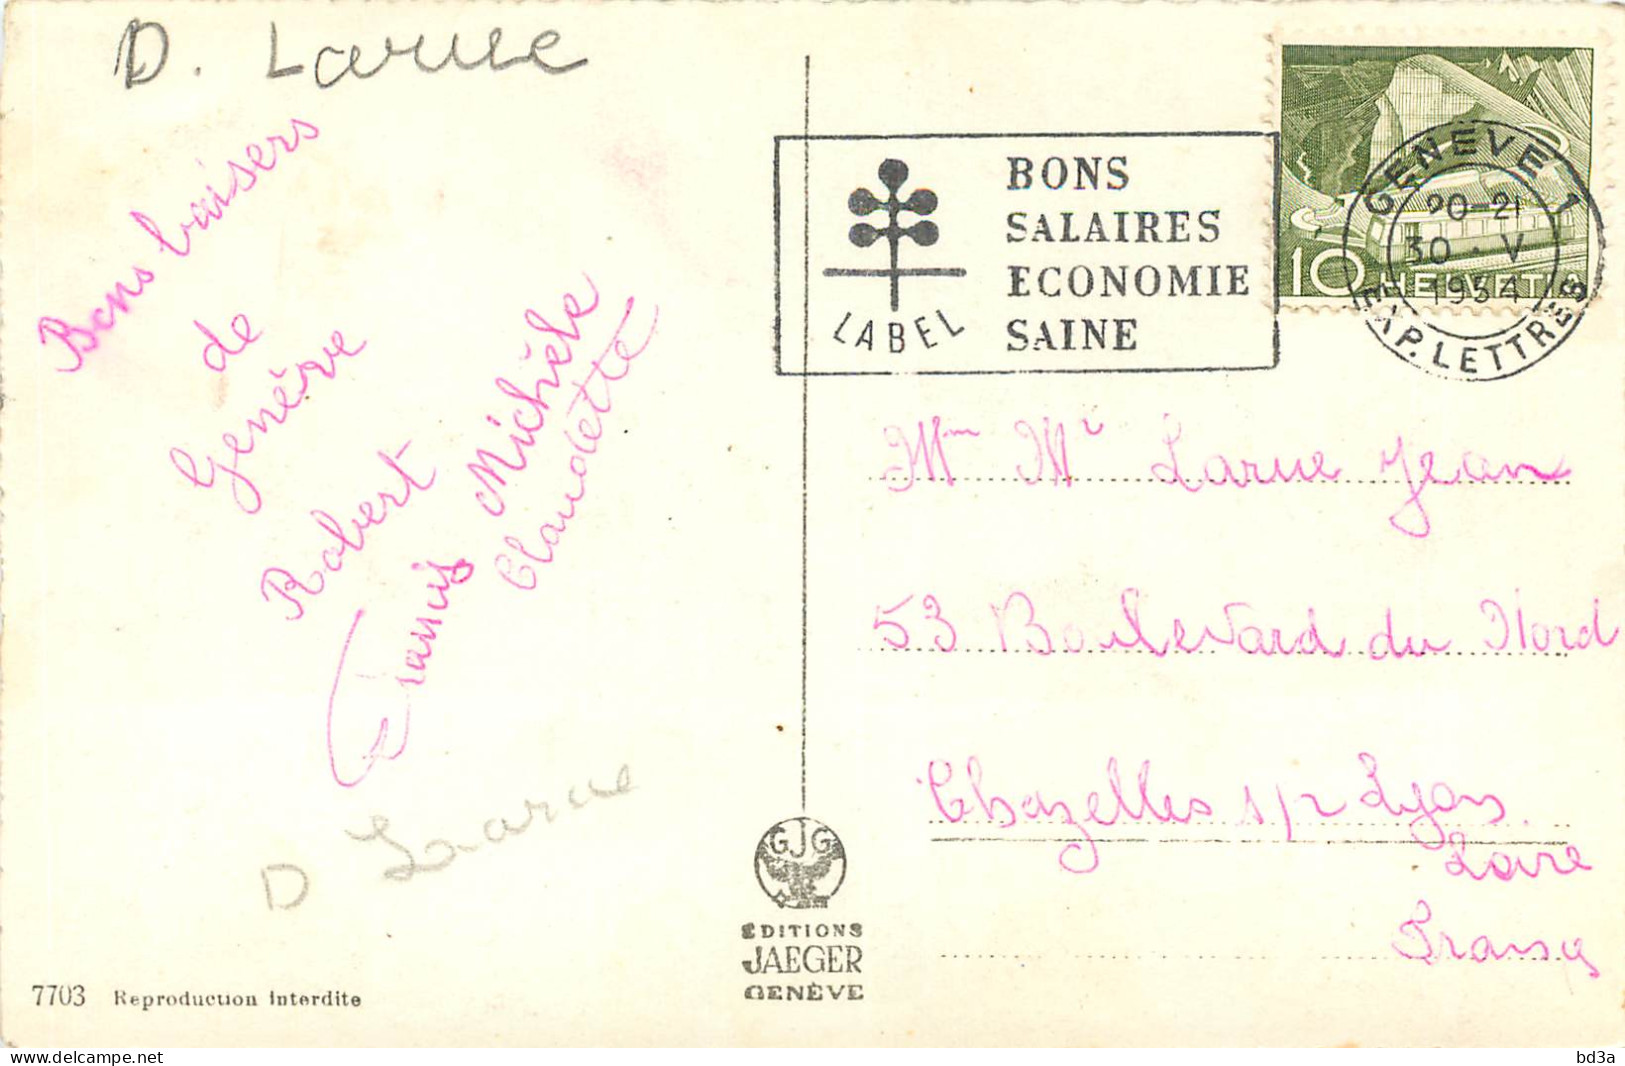 D. Larue
Bons baisers
de
Genève
Robert
Francis
Michèle
Claudette
D Larue
7703 Reproduction Interdite
BONS
SALAIRES
ECONOMIE
SAINE
LABEL
10 HELVETIA
GENÈVE 1
20-21
30·V
1954
EXP. LETTRES
Mm Mr Larue Jean
53 Boulevard du Nord
Chazelles s/r Lyon.
Loire
France
GJG
EDITIONS
JAEGER
GENÈVE
delcampe.net
bd3a